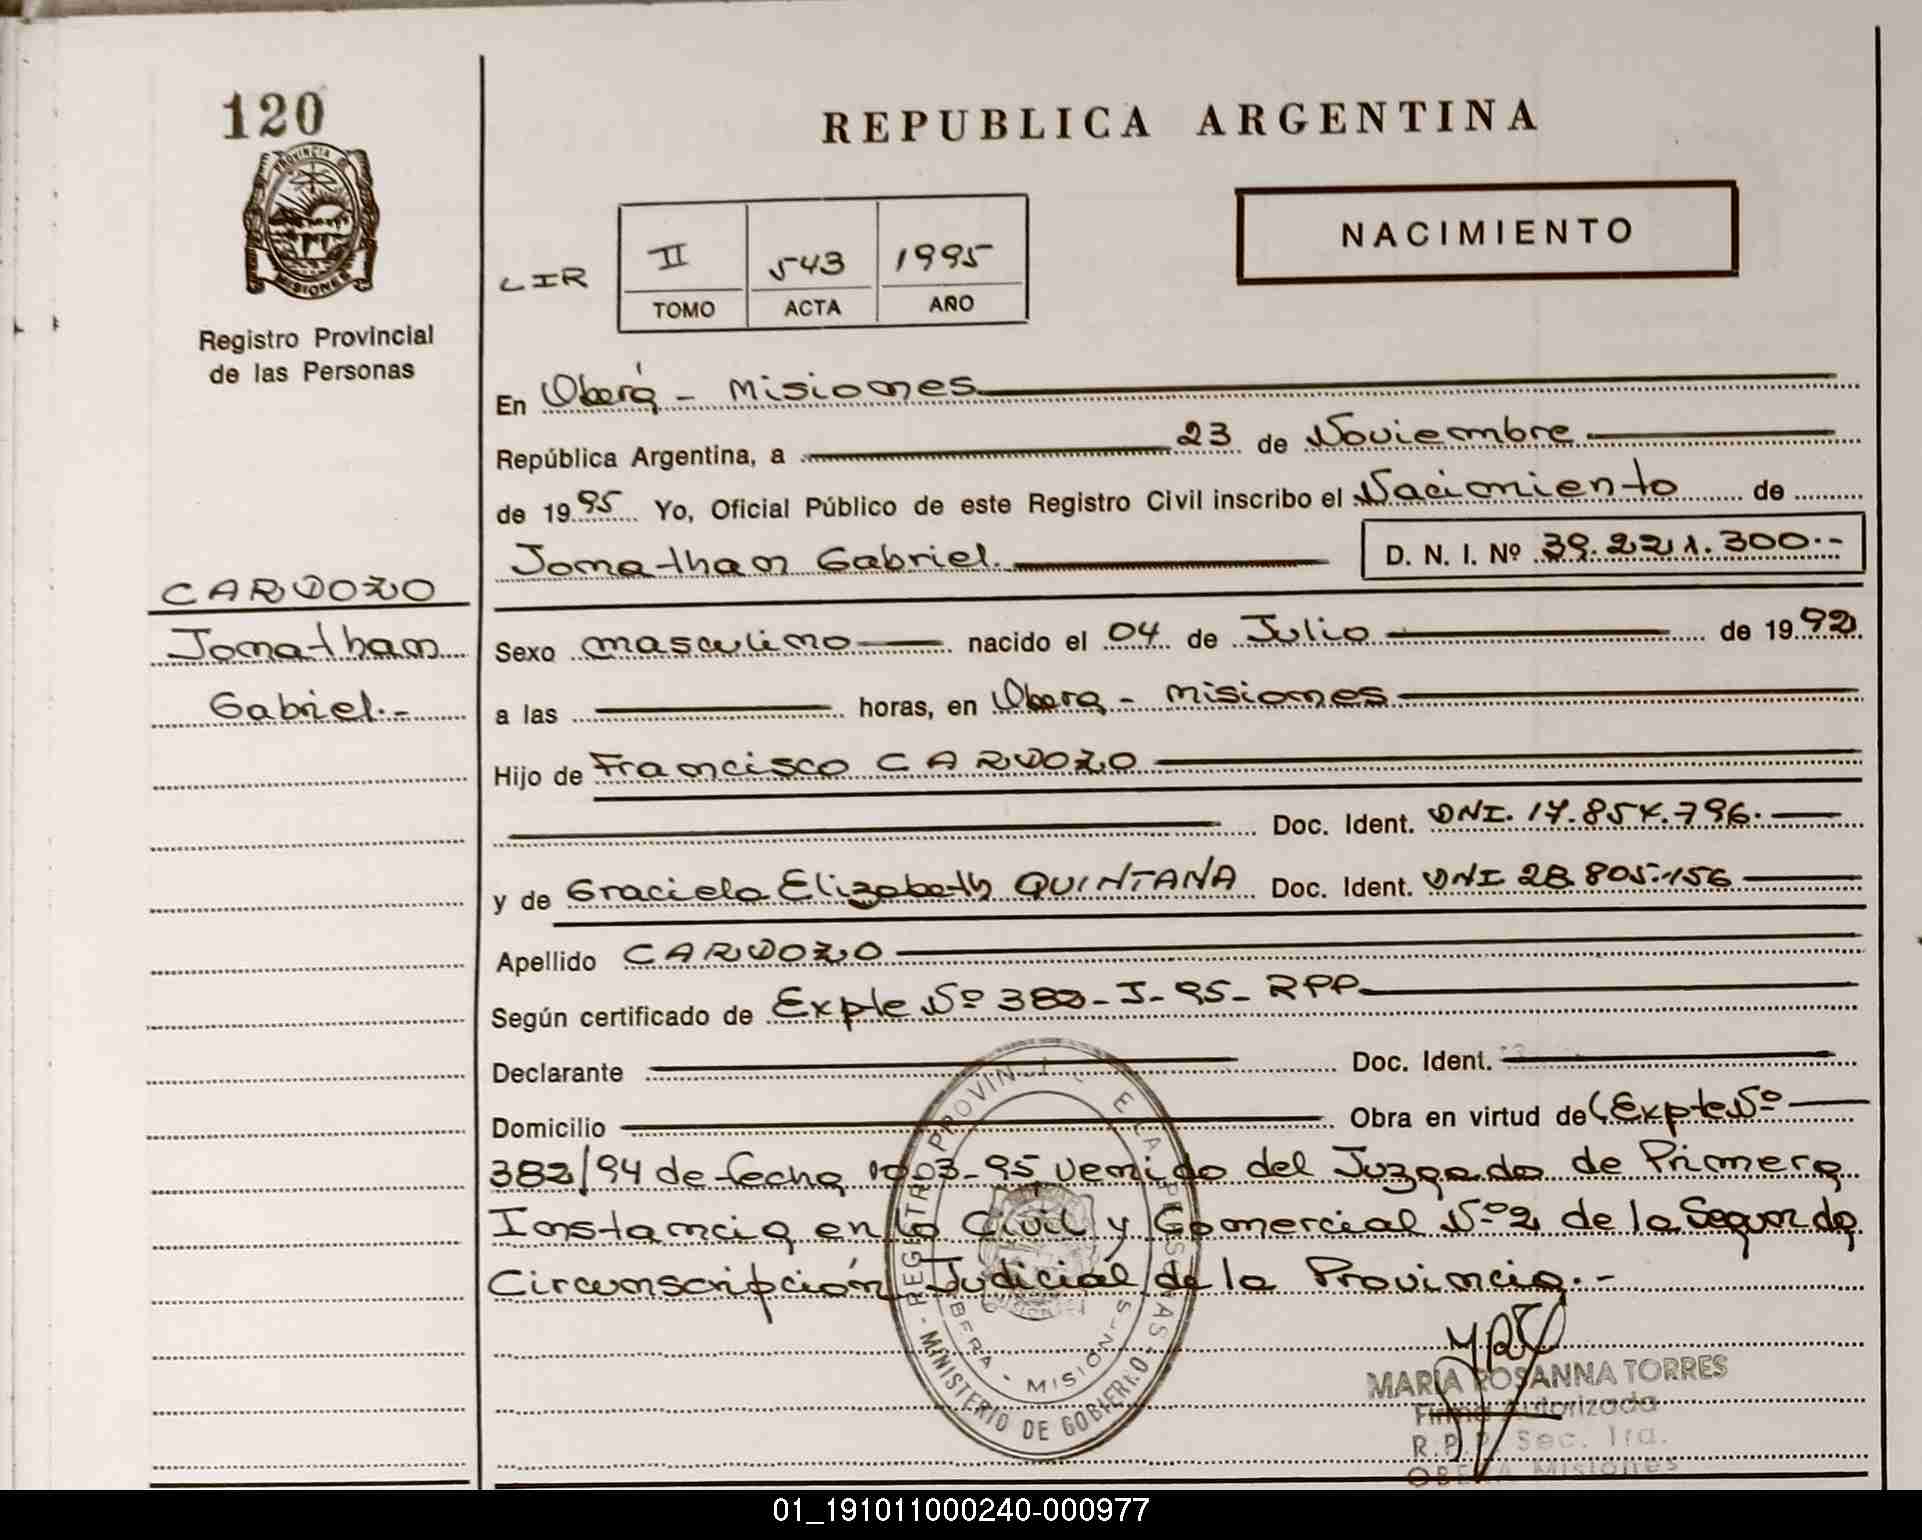 120
REPUBLICA ARGENTINA
PROVINCIA DE
MISIONES
Registro Provincial
de las Personas
LIR
II
543
1995
TOMO
ACTA
AÑO
NACIMIENTO
En Oberá - Misiones
República Argentina, a 23 de Noviembre
de 1995 Yo, Oficial Público de este Registro Civil inscribo el Nacimiento de
Jonathan Gabriel. D. N. I. Nº 39.221.300.-
CARDOZO
Jonathan
Gabriel.-
Sexo masculino nacido el 04 de Julio de 1992
a las horas, en Obera - Misiones
Hijo de Francisco CARDOZO
Doc. Ident. DNI. 17.854.796.
y de Graciela Elizabeth QUINTANA Doc. Ident. DNI 28.805.156
Apellido CARDOZO
Según certificado de Expte Nº 382-J-95-RPP
Declarante Doc. Ident.
Domicilio Obra en virtud de Expte Nº
382/94 de fecha 10-03-95 venido del Juzgado de Primera
Instancia en lo Civil y Comercial Nº 2 de la Segunda
Circunscripción Judicial de la Provincia.-
REGISTRO PROVINCIAL DE LAS PERSONAS
OBERA - MISIONES
MINISTERIO DE GOBIERNO
MARIA ROSANNA TORRES
Firma Autorizada
R.P.P. Sec. 1ra.
OBERA Misiones
01_191011000240-000977